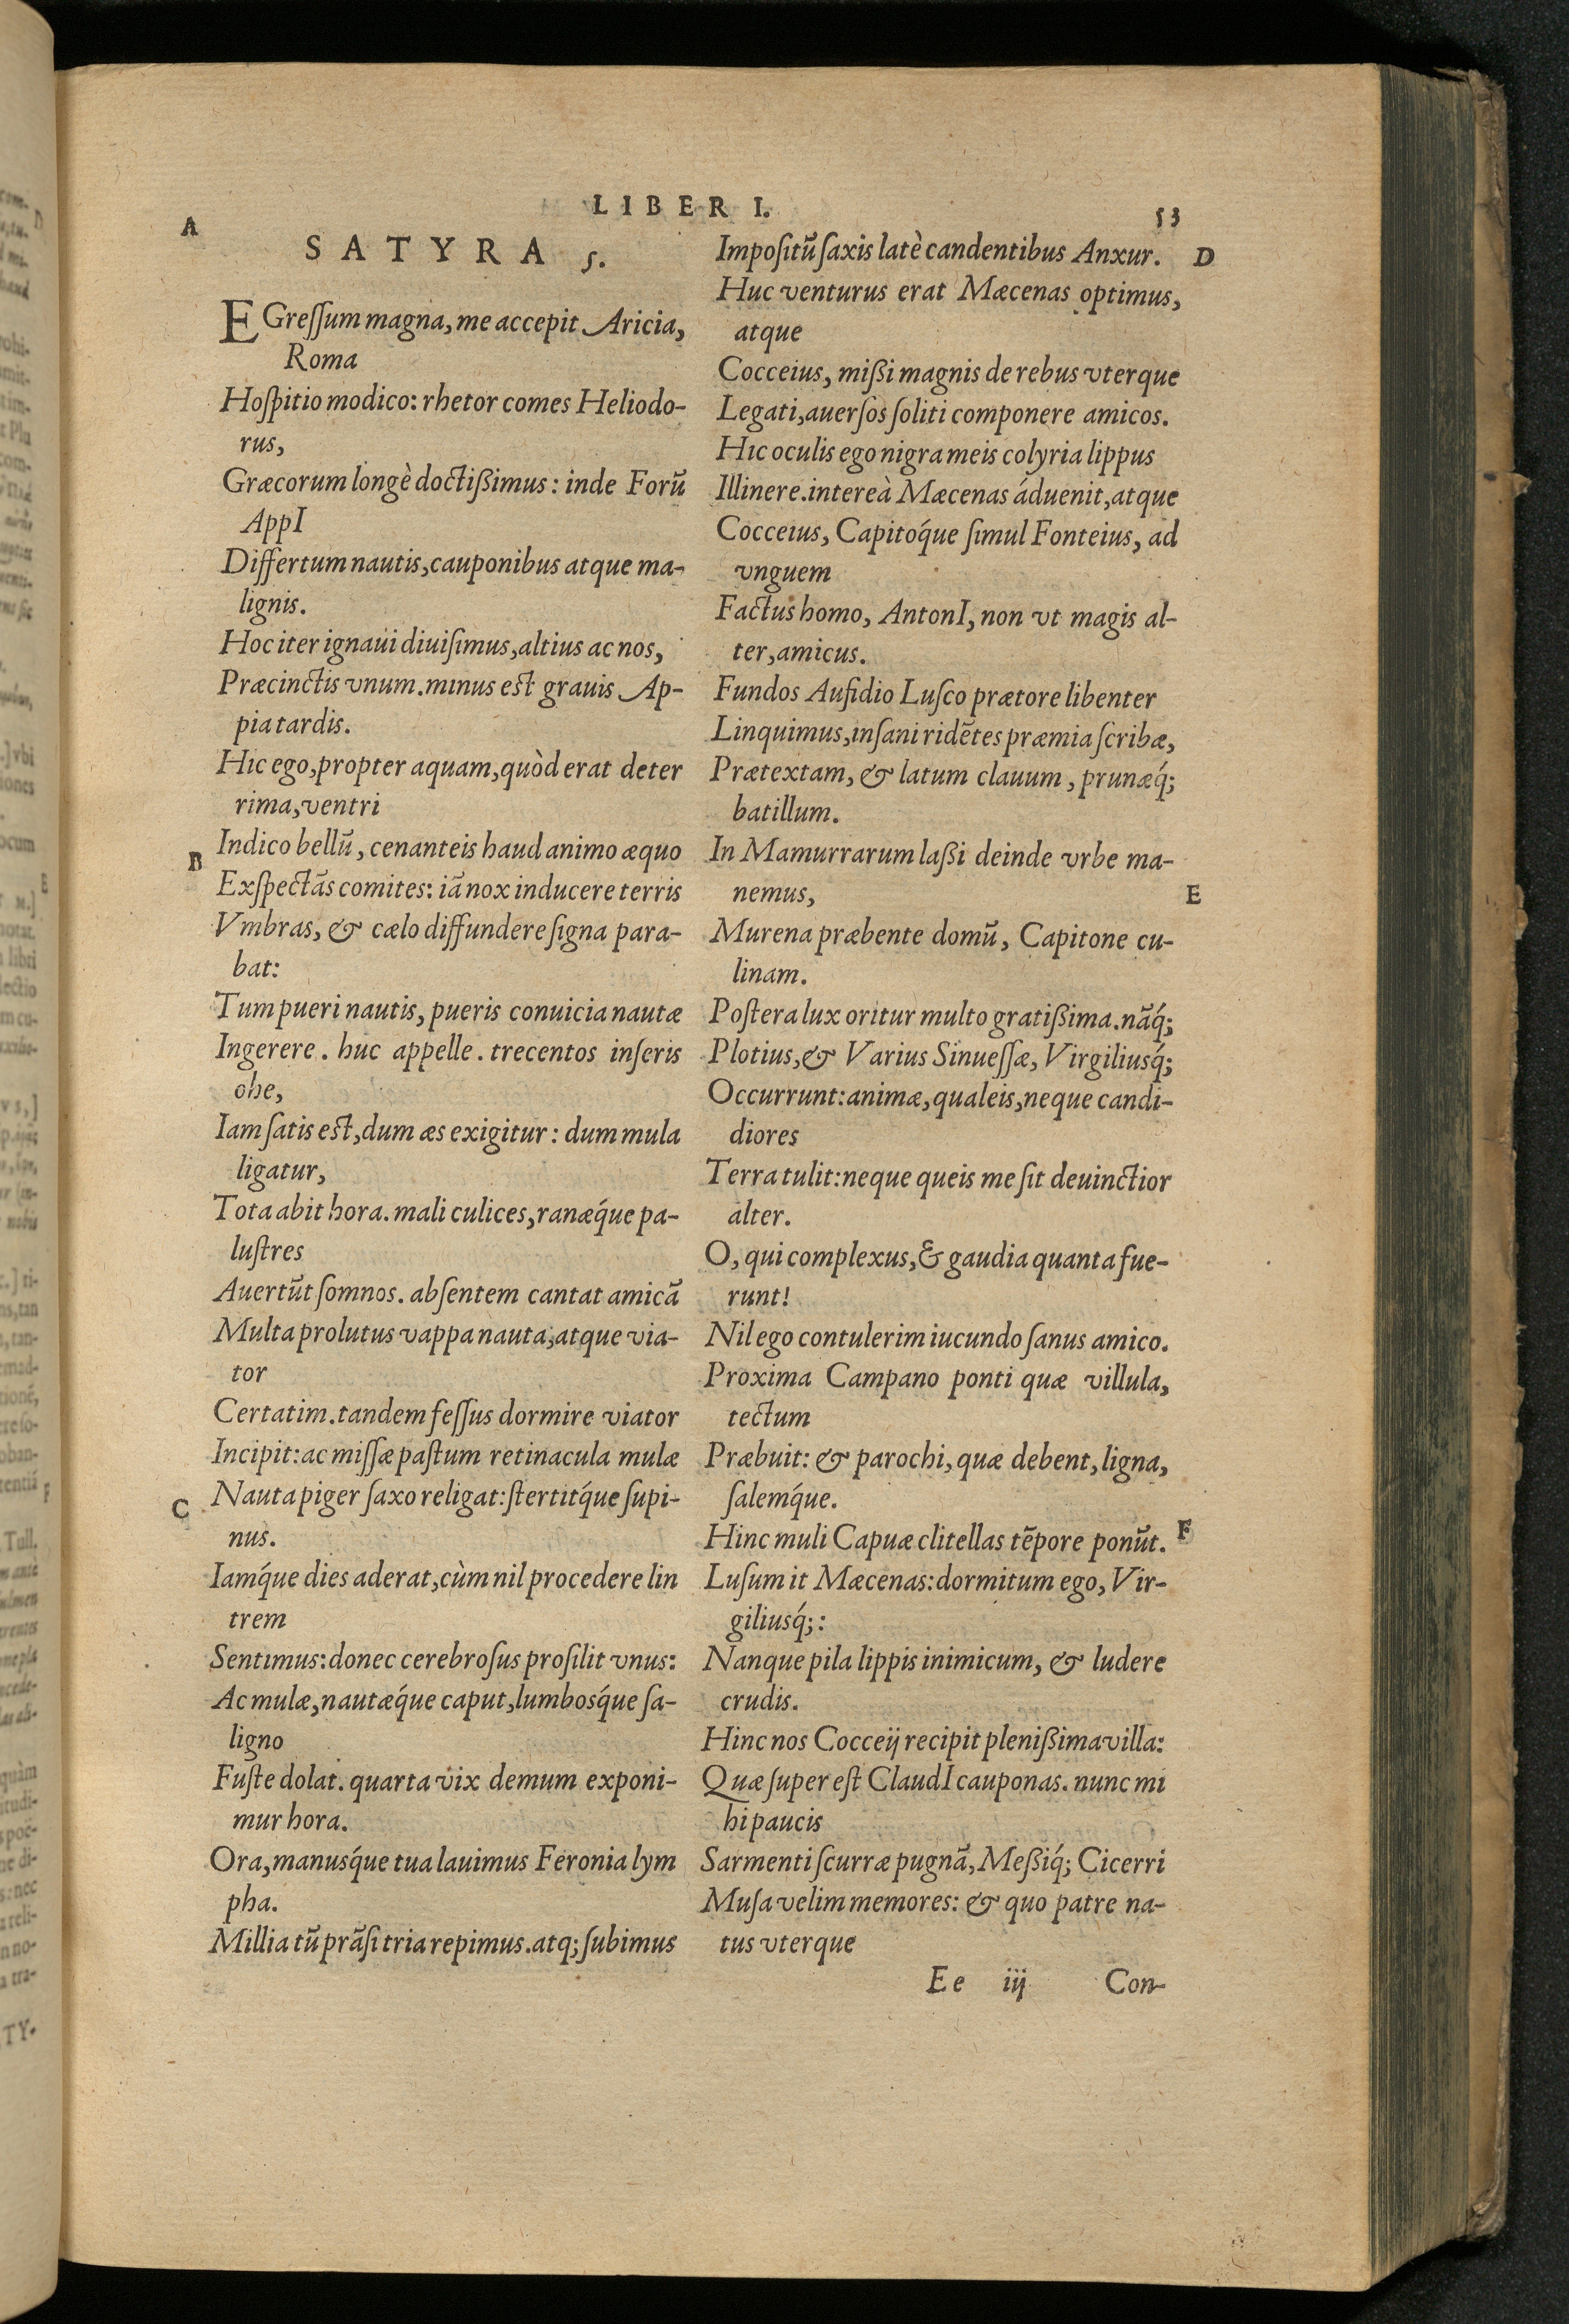 LIBER I.
53
A
SATYRA 5.
EGreſſum magna, me accepit Aricia,
Roma
Hoſpitio modico: rhetor comes Heliodo-
rus,
Græcorum longè doctißimus: inde Forū
AppI
Differtum nautis, cauponibus atque ma-
lignis.
Hoc iter ignaui diuiſimus, altius ac nos,
Præcinctis vnum. minus est grauis Ap-
pia tardis.
Hic ego, propter aquam, quòd erat deter
rima, ventri
B
Indico bellū, cenanteis haud animo æquo
Exſpectās comites: iā nox inducere terris
Vmbras, & cælo diffundere ſigna para-
bat:
Tum pueri nautis, pueris conuicia nautæ
Ingerere. huc appelle. trecentos inſeris
ohe,
Iam ſatis est, dum æs exigitur: dum mula
ligatur,
Tota abit hora. mali culices, ranæq́ue pa-
luſtres
Auertūt ſomnos. abſentem cantat amicā
Multa prolutus vappa nauta, atque via-
tor
Certatim. tandem feſſus dormire viator
Incipit: ac miſſæ paſtum retinacula mulæ
C
Nauta piger ſaxo religat: ſtertitq́ue ſupi-
nus.
Iamq́ue dies aderat, cùm nil procedere lin
trem
Sentimus: donec cerebroſus proſilit vnus:
Ac mulæ, nautæq́ue caput, lumbosq́ue ſa-
ligno
Fuſte dolat. quarta vix demum exponi-
mur hora.
Ora, manusq́ue tua lauimus Feronia lym
pha.
Millia tū prāſi tria repimus. atq; ſubimus
Impoſitū ſaxis latè candentibus Anxur.
D
Huc venturus erat Mæcenas optimus,
atque
Cocceius, mißi magnis de rebus vterque
Legati, auerſos ſoliti componere amicos.
Hic oculis ego nigra meis colyria lippus
Illinere. intereà Mæcenas áduenit, atque
Cocceius, Capitoq́ue ſimul Fonteius, ad
vnguem
Factus homo, AntonI, non vt magis al-
ter, amicus.
Fundos Aufidio Luſco prætore libenter
Linquimus, inſani ridētes præmia ſcribæ,
Prætextam, & latum clauum, prunæq́;
batillum.
In Mamurrarum laßi deinde vrbe ma-
nemus,
E
Murena præbente domū, Capitone cu-
linam.
Poſtera lux oritur multo gratißima. nāq́;
Plotius, & Varius Sinueſſæ, Virgiliusq́;
Occurrunt: animæ, qualeis, neque candi-
diores
Terra tulit: neque queis me ſit deuinctior
alter.
O, qui complexus, & gaudia quanta fue-
runt!
Nil ego contulerim iucundo ſanus amico.
Proxima Campano ponti quæ villula,
tectum
Præbuit: & parochi, quæ debent, ligna,
ſalemq́ue.
Hinc muli Capuæ clitellas tēpore ponūt.
F
Luſum it Mæcenas: dormitum ego, Vir-
giliusq́;:
Nanque pila lippis inimicum, & ludere
crudis.
Hinc nos Cocceij recipit plenißima villa:
Quæ ſuper eſt ClaudI cauponas. nunc mi
hi paucis
Sarmenti ſcurræ pugnā, Meßiq́; Cicerri
Muſa velim memores: & quo patre na-
tus vterque
Ee iij
Con-